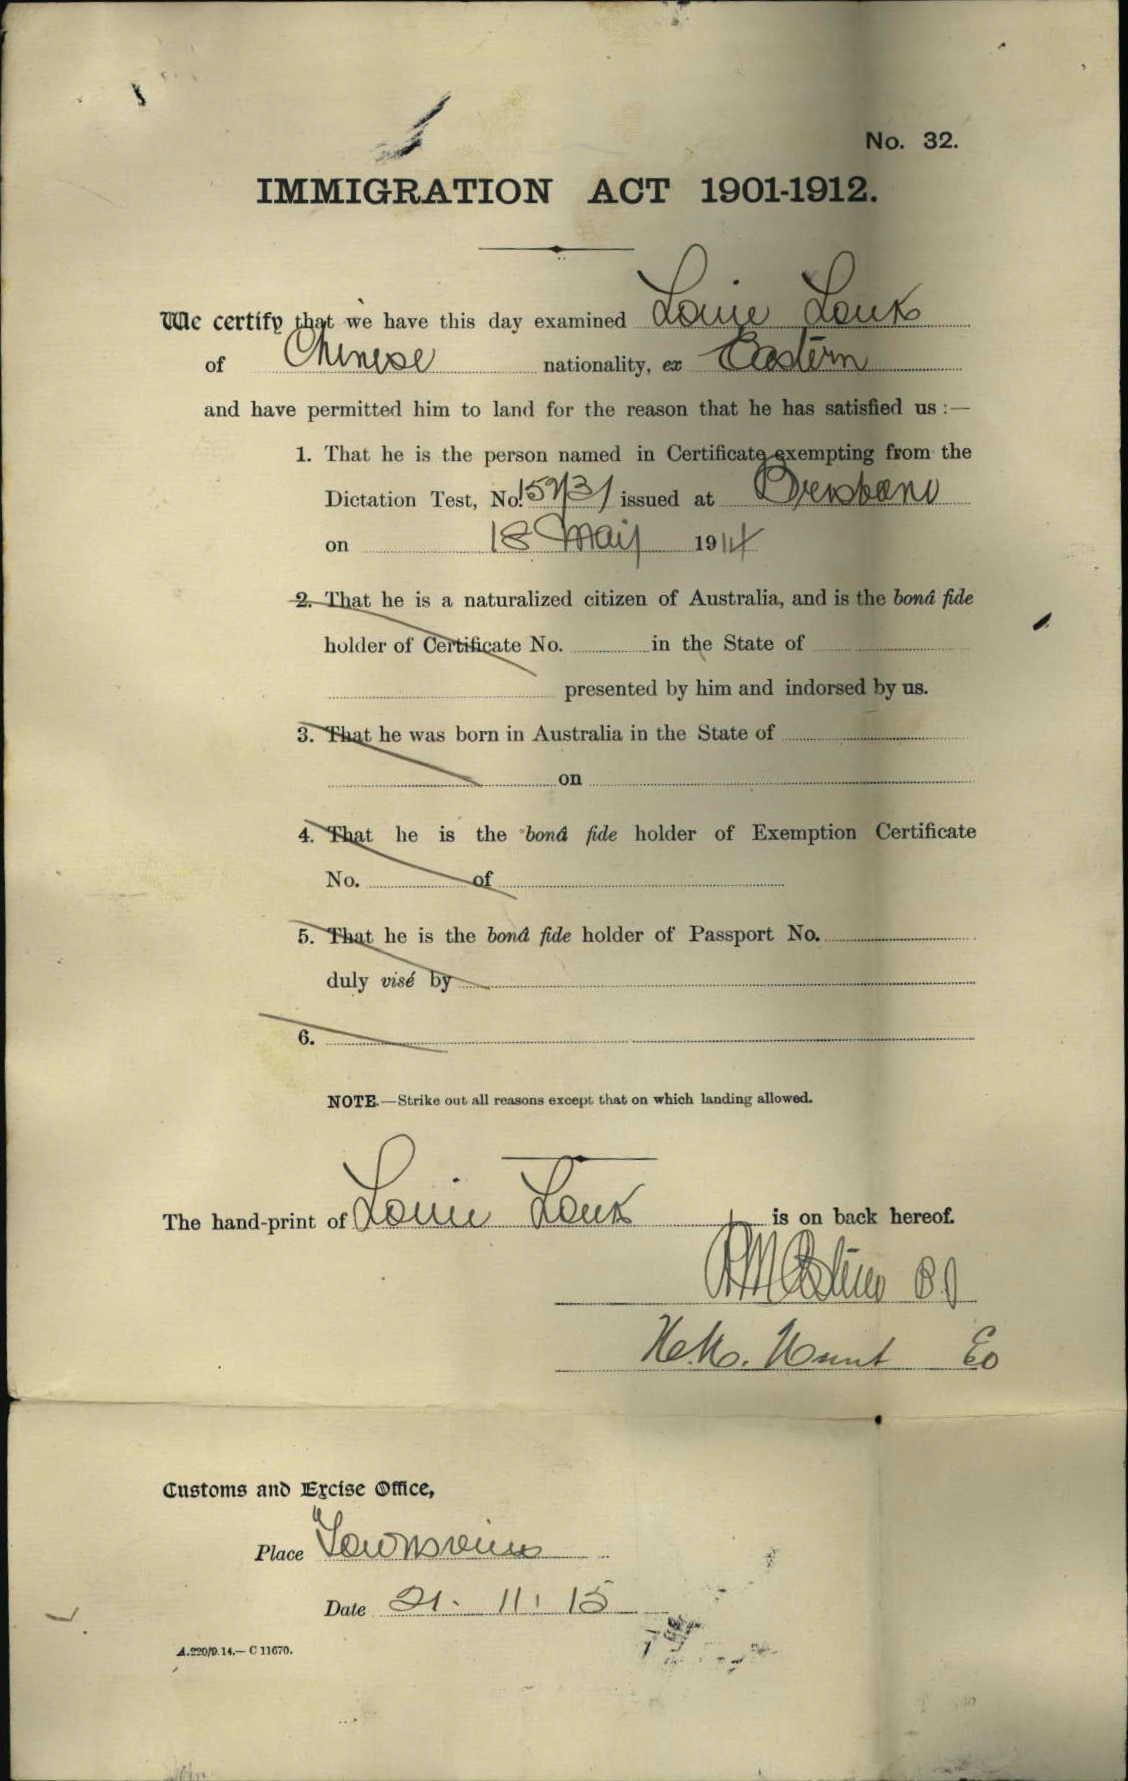 No. 32.
IMMIGRATION ACT 1901-1912.
We certify that we have this day examined Louie
of Chinese nationality, ex Eastern
and have permitted him to land for the reason that he has satisfied us :—
1. That he is the person named in Certificate exempting from the
Dictation Test, No. issued at Brisbane
on 18 May 1914
2. That he is a naturalized citizen of Australia, and is the bonâ fide
holder of Certificate No. in the State of
presented by him and indorsed by us.
3. That he was born in Australia in the State of
on
4. That he is the bonâ fide holder of Exemption Certificate
No. of
5. That he is the bonâ fide holder of Passport No.
duly visé by
6.
NOTE.—Strike out all reasons except that on which landing allowed.
The hand-print of Louie is on back hereof.
Hunt
Customs and Excise Office,
Place Townsville
Date 21. 11. 15
A.220/9.14.— C 11670.